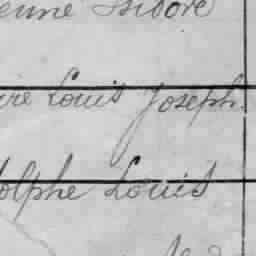 enne Isidore
ire Louis Joseph
dolphe Louis